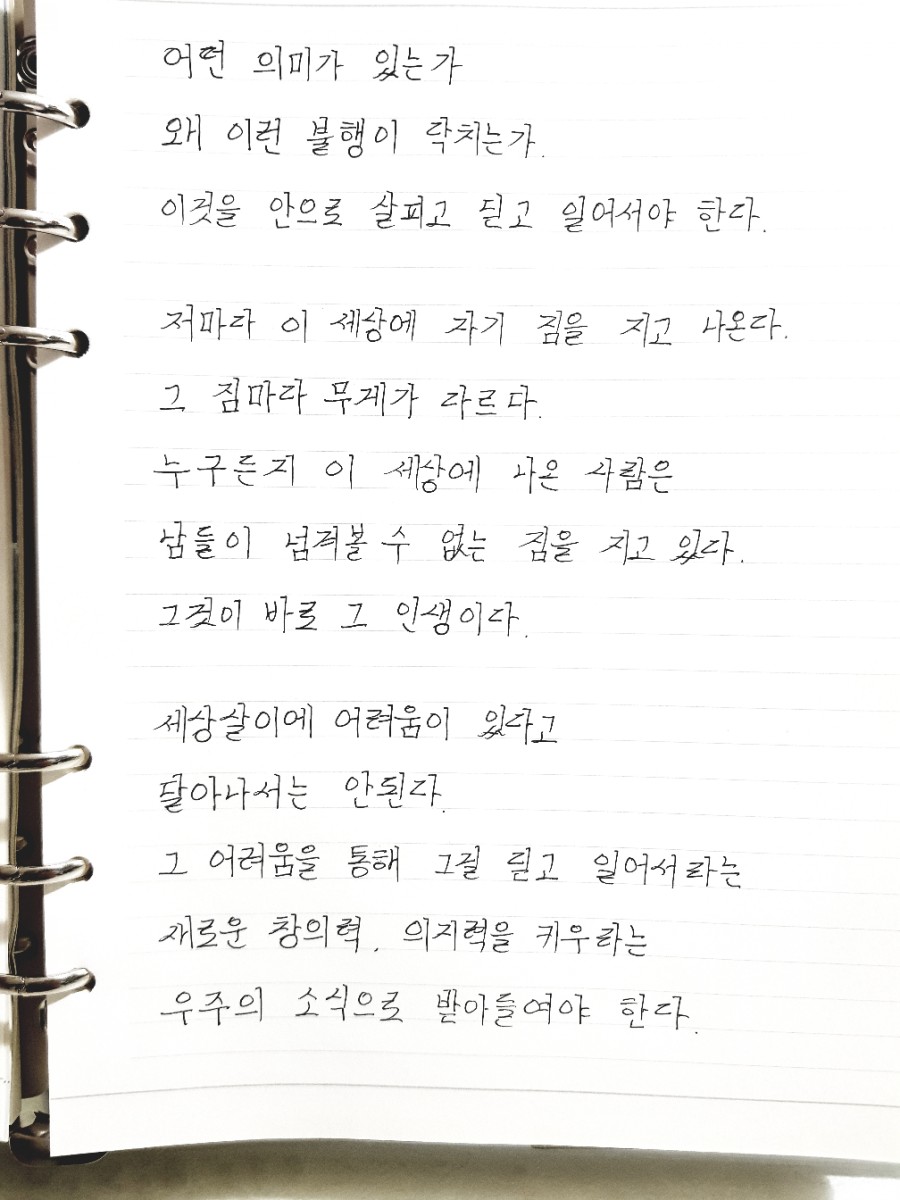 어떤 의미가 있는가
왜 이런 불행이 닥치는가.
이것을 안으로 살피고 딛고 일어서야 한다.
저마다 이 세상에 자기 짐을 지고 나온다.
그 짐마다 무게가 다르다.
누구든지 이 세상에 나온 사람은
남들이 넘겨볼 수 없는 짐을 지고 있다.
그것이 바로 그 인생이다.
세상살이에 어려움이 있다고
달아나서는 안된다.
그 어려움을 통해 그걸 딛고 일어서라는
새로운 창의력, 의지력을 키우라는
우주의 소식으로 받아들여야 한다.